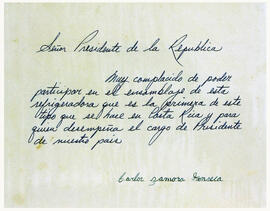 Señor Presidente de la Republica
Muy complacido de poder
participar en el ensamblaje de esta
refrigeradora que es la primera de este
tipo que se hace en Costa Rica y para
quien desempeña el cargo de Presidente
de nuestro pais
Carlos Zamora Fonseca